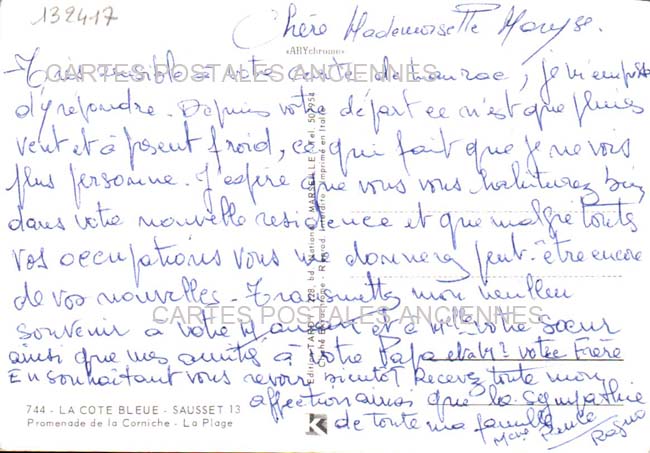 132417
Chère Mademoiselle Maryse.
«ARYchrome»
- Très sensible à votre carte de , je m'empresse
d'y répondre. Depuis votre départ ce n'est que pluies
vent et à présent froid, ce qui fait que je ne vois
plus personne. J'espère que vous vous habituez bien
dans votre nouvelle residence et que malgré toutes
vos occupations vous me donnerez peut-être encore
de vos nouvelles - Transmettez mon meilleur
souvenir à votre Maman et à Melle votre sœur
ainsi que mes amitiés à votre Papa et à Mr votre Frère
En souhaitant vous revoir bientôt Recevez toute mon
affection ainsi que la sympathie
de toute ma famille
Mme
CARTES POSTALES ANCIENNES
CARTES POSTALES ANCIENNES
744 - LA COTE BLEUE - SAUSSET 13
Promenade de la Corniche - La Plage
K